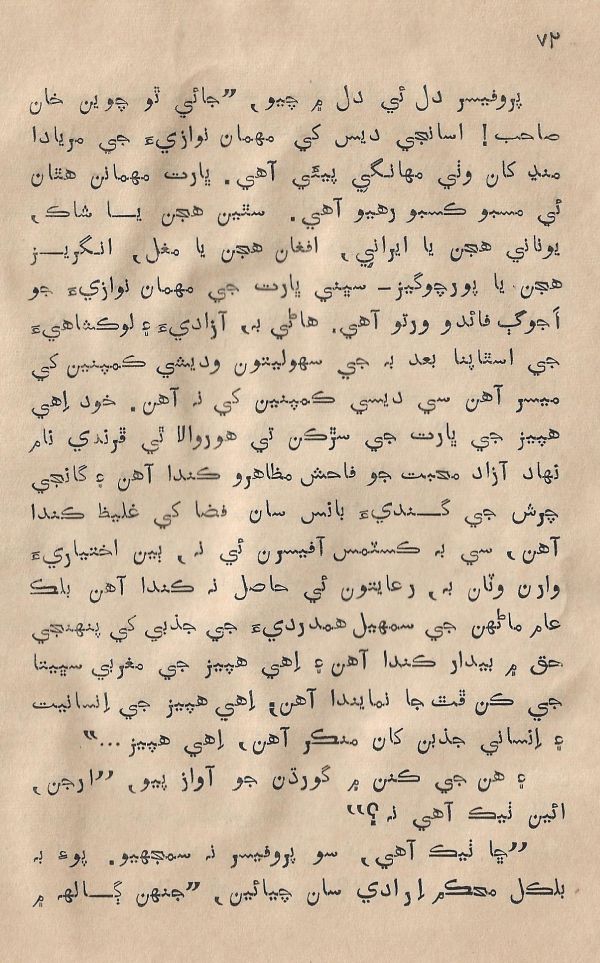 ۷۳
پروفيسر دل ئي دل ۾ چيو, ”جائي ٿو چوين خان
صاحب! اسانجي ديس کي مهمان نوازيءَ جي مريادا
منڍ کان وٺي مهانگي پيئي آهي. ڀارت مهمانن هٿان
ئي مسبو ڪسبو رهيو آهي. سٿين هجن يا شاڪ,
يوناني هجن يا ايراني, افغان هجن يا مغل, انگريز
هجن يا پورچوگيز – سڀني ڀارت جي مهمان نوازيءَ جو
اَجوڳ فائدو ورتو آهي. هاڻي به, آزاديءَ ۽ لوڪشاهيءَ
جي استاپنا بعد به جي سهوليتون وديشي ڪمپنين کي
ميسر آهن سي ديسي ڪمپنين کي نه آهن. خود اِهي
هپيز جي ڀارت جي سڙڪن تي هوروالا ٿي ڦرندي نام
نهاد آزاد محبت جو فاحش مظاهرو ڪندا آهن ۽ گانجي
چرش جي گنديءَ بانس سان فضا کي غليظ ڪندا
آهن, سي به ڪسٽمس آفيسرن ئي نه, ٻين اختياريءَ
وارن وٽان به, رعايتون ئي حاصل نه ڪندا آهن بلڪ
عام ماڻهن جي سمهيل همدرديءَ جي جذبي کي پنهنجي
حق ۾ بيدار ڪندا آهن ۽ اِهي هپيز جي مغربي سڀيتا
جي ڪن ڦٽ جا نمايندا آهن, اِهي هپيز جي اِنسانيت
۽ اِنساني جذبن کان منڪر آهن, اِهي هپيز...“
۽ هن جي ڪنن ۾ گورڌن جو آواز پيو, ”ارجن,
ائين ٺيڪ آهي نه؟“
”ڇا ٺيڪ آهي, سو پروفيسر نه سمجهيو. پوءِ به
بلڪل محڪم اِرادي سان چيائين, ”جنهن ڳالهه ۾